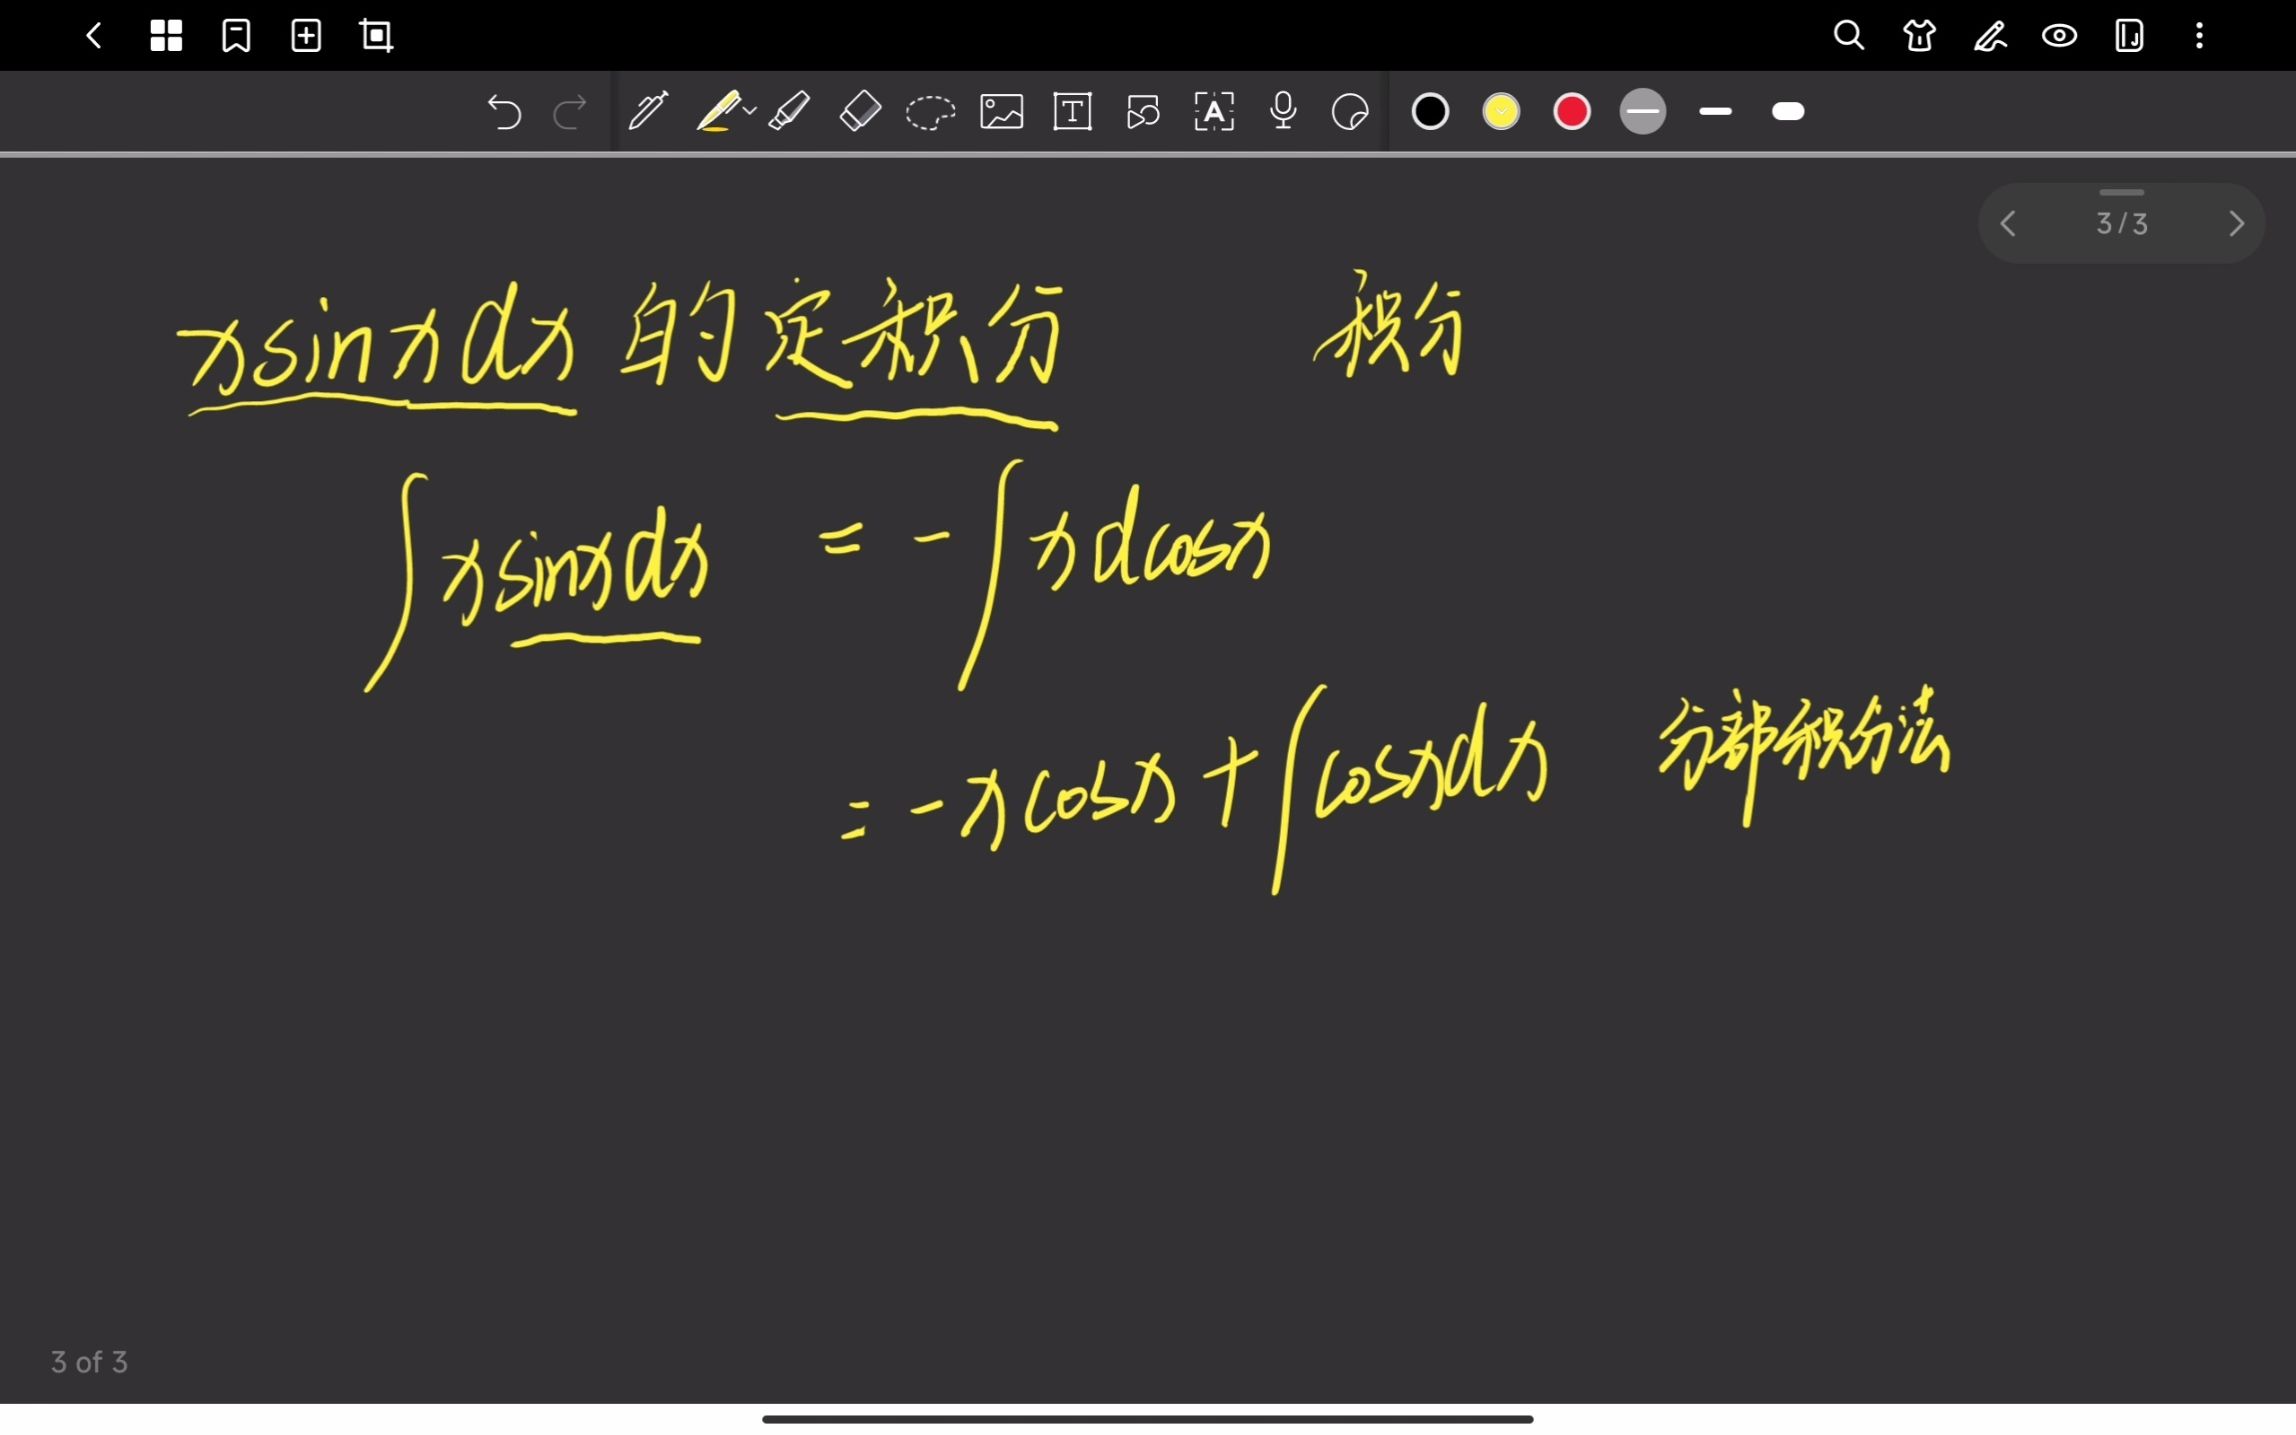 3/3
xsinxdx 的定积分 积分
∫xsinxdx = -∫xdcosx
= -xcosx + ∫cosxdx 分部积分法
3 of 3